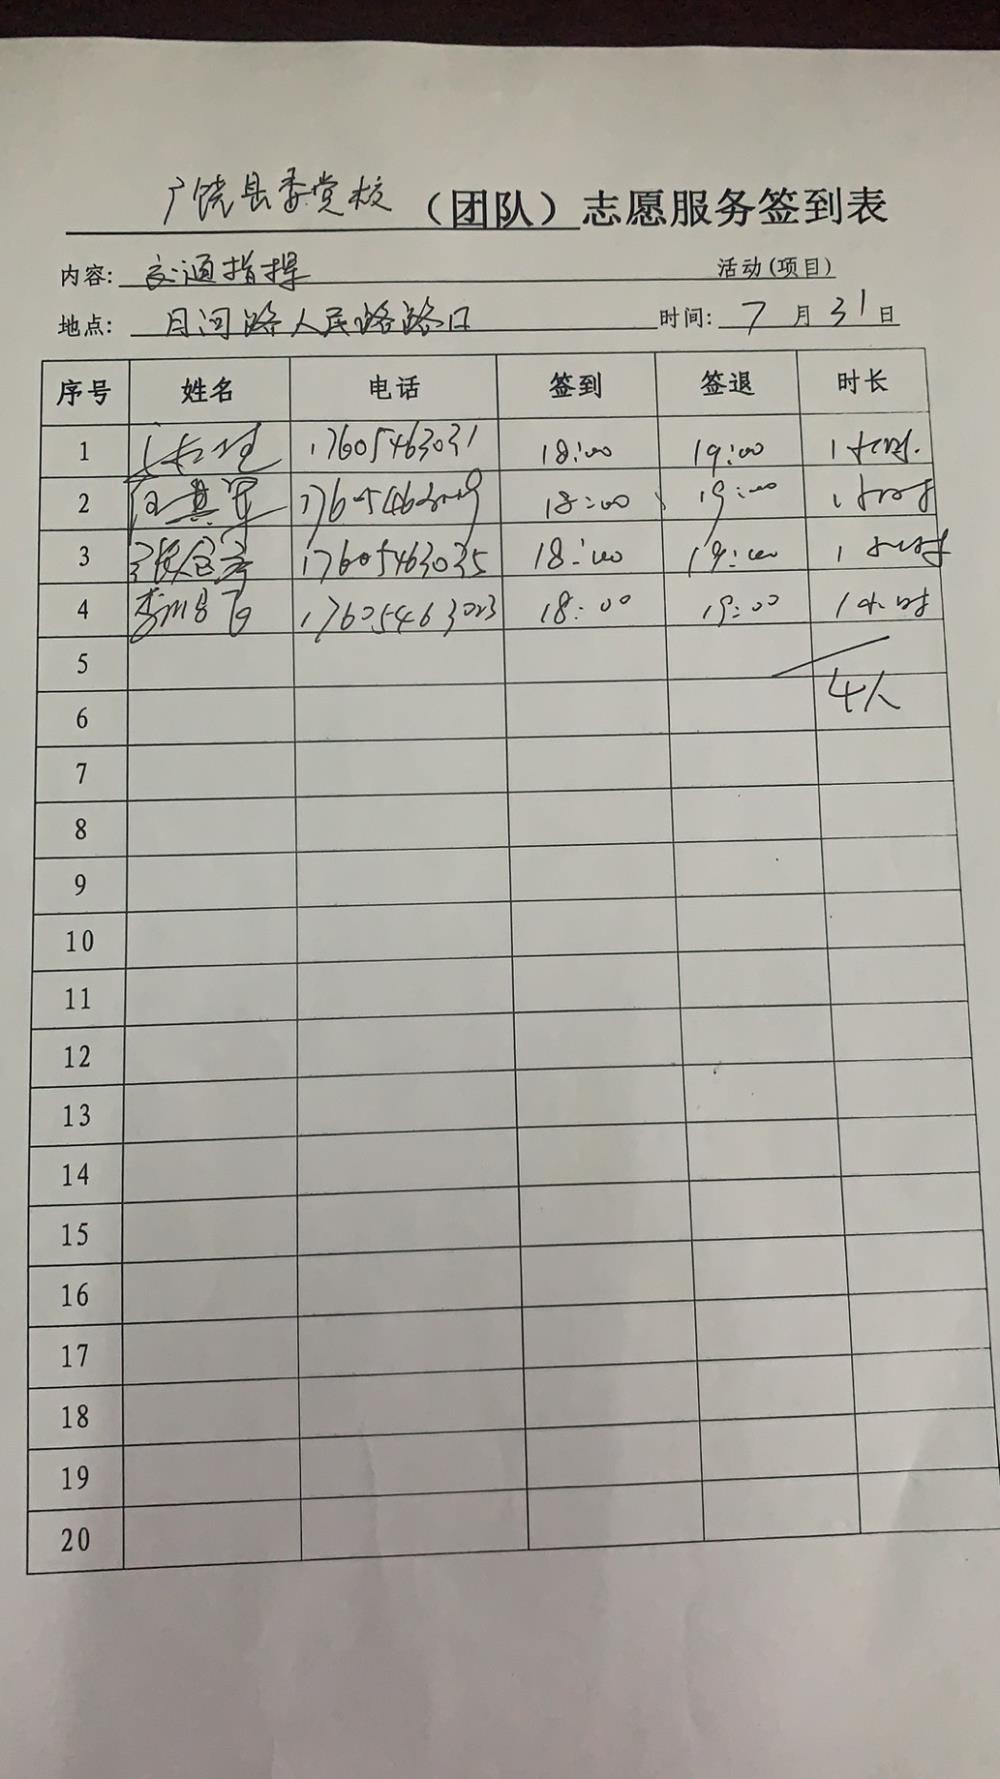 广饶县委党校（团队）志愿服务签到表
内容: 交通指挥 活动(项目)
地点: 月河路人民路路口 时间: 7月31日
序号 姓名 电话 签到 签退 时长
1 17605463031 18:00 19:00 1小时.
2 18:00 19:00 1小时
3 17605463035 18:00 19:00 1小时
4 17605463023 18:00 19:00 1小时
5
6 4人
7
8
9
10
11
12
13
14
15
16
17
18
19
20